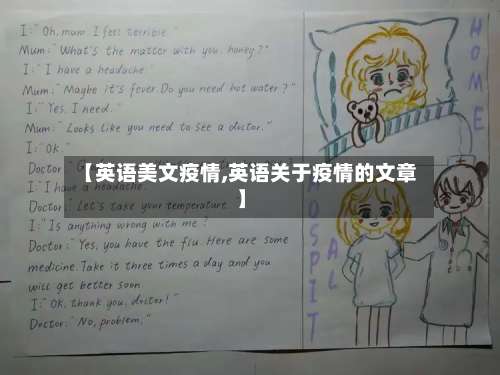 I:"Oh, mum I feel terrible."
Mum:"What's the matter with you, honey?"
I:"I have a headache."
Mum:"Maybe it's fever. Do you need hot water?"
I:"Yes, I need."
Mum:"Looks like you need to see a doctor."
I:"OK."
Doctor:
I:"I have a headache.
Doctor:"Let's take your temperature.
I:"Is anything wrong with me?
Doctor:"Yes, you have the flu. Here are some
medicine. Take it three times a day and you
will get better soon
I:"OK, thank you, doctor!"
Doctor:"No, problem."
HOME
HOSPITAL
【英语美文疫情,英语关于疫情的文章
】